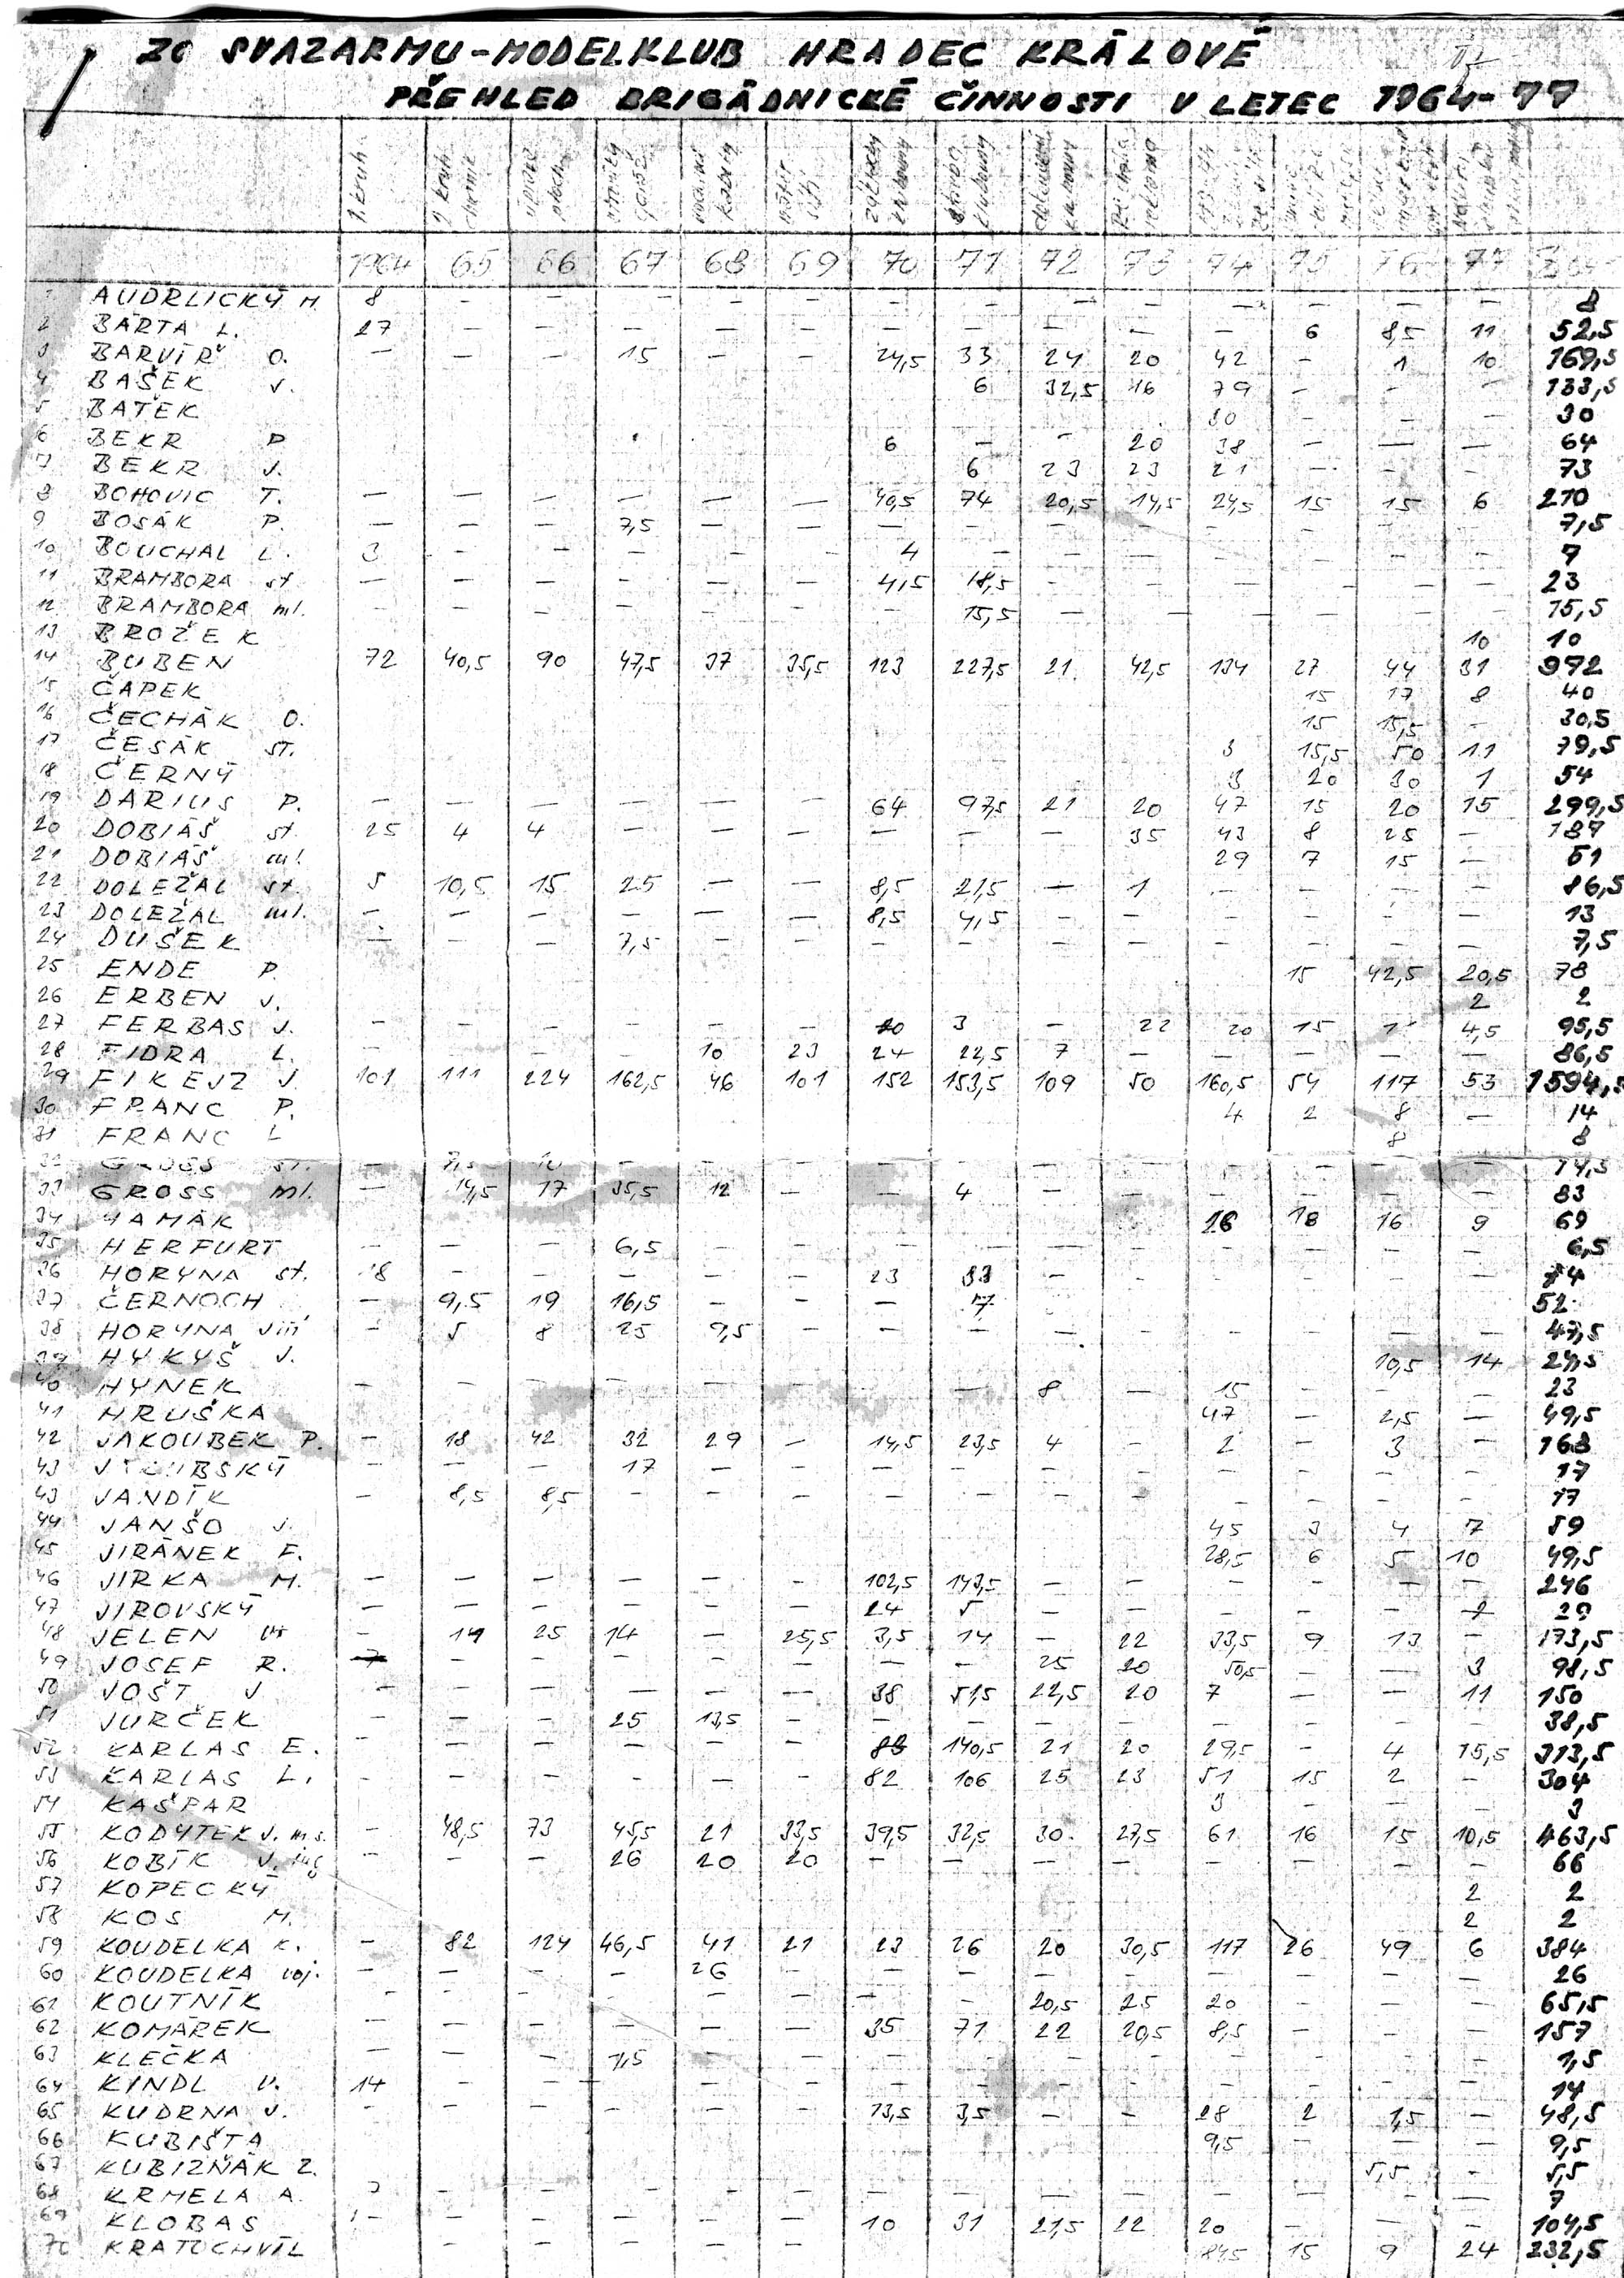 ZO SVAZARMU-MODELKLUB HRADEC KRÁLOVÉ
PŘEHLED BRIGÁDNICKÉ ČINNOSTI V LETEC 1964-77
1964 65 66 67 68 69 70 71 72 73 74 75 76 77
AUDRLICKÝ M. 8 — — — — — — — — — — — — — 8
2 BÁRTA L. 27 — — — — — — — — — — 6 8,5 11 52,5
3 BARVÍŘ O. — — — 15 — — 24,5 33 24 20 42 — 1 10 169,5
4 BAŠEK V. 6 32,5 16 79 — — — 133,5
5 BATĚK 30 — — — 30
6 BEKR P 6 — — 20 38 — — — 64
7 BEKR J. 6 23 23 21 — — — 73
8 BOHOVIC T. — — — — — — 40,5 74 20,5 14,5 24,5 15 15 6 210
9 BOSÁK P. — — — 7,5 — — — — — — — — — — 7,5
10 BOUCHAL L. 3 — — — — — 4 — — — — — — — 7
11 BRAMBORA st. — — — — — — 4,5 18,5 — — — — — — 23
12 BRAMBORA ml. — — — — — — — 15,5 — — — — — — 15,5
13 BROŽEK 10 10
14 BUBEN 72 40,5 90 47,5 37 35,5 123 227,5 21 42,5 134 27 44 31 992
15 ČAPEK 15 17 8 40
16 ČECHÁK O. 15 15,5 — 30,5
17 ČESÁK ST. 3 15,5 50 11 79,5
18 ČERNÝ 3 20 30 1 54
19 DARIUS P. — — — — — — 64 97,5 21 20 47 15 20 15 299,5
20 DOBIÁŠ st. 25 4 4 — — — — — — 35 43 8 25 — 187
21 DOBIÁŠ ml. 29 7 15 — 51
22 DOLEŽAL st. 5 10,5 15 25 — — 8,5 21,5 — 1 — — — — 86,5
23 DOLEŽAL ml. — — — — — — 8,5 4,5 — — — — — — 13
24 DUŠEK — — — 7,5 — — — — — — — — — — 7,5
25 ENDE P. 15 42,5 20,5 78
26 ERBEN J. 2 2
27 FERBAS J. — — — — — — 3 — 22 20 15 4,5 95,5
28 FIDRA L. — — — — 10 23 24 22,5 7 — — — — — 86,5
29 FIKEJZ J. 101 111 224 162,5 46 101 152 153,5 109 50 160,5 54 117 53 1594,5
30 FRANC P. 4 2 8 — 14
31 FRANC L 8 8
GROSS — — — — — — — — — — — — 14,5
33 GROSS ml. — 14,5 17 35,5 12 — — 4 — — — — — — 83
34 HAMÁK 26 18 16 9 69
35 HERFURT — — — 6,5 — — — — — — — — — — 6,5
36 HORYNA st. 18 — — — — — 23 33 — — — — — — 74
37 ČERNOCH — 9,5 19 16,5 — — — 7 52
38 HORYNA Jiří — 5 8 25 9,5 — — — — — — — — — 47,5
39 HYKYŠ J. 10,5 14 24,5
40 HYNEK — — — — — — — — 8 — 15 — — — 23
41 HRUŠKA 47 — 2,5 — 49,5
42 JAKOUBEK P. — 18 42 32 29 — 14,5 23,5 4 — 2 — 3 — 168
43 — — — 17 — — — — — — — — — — 17
43 JANDÍK — 8,5 8,5 — — — — — — — — — — — 17
44 JANŠO J. 45 3 4 7 59
45 JIRÁNEK F. 28,5 6 5 10 49,5
46 JIRKA M. — — — — — — 102,5 143,5 — — — — — — 246
47 JIROVSKÝ — — — — — — 24 5 — — — — — 29
48 JELEN — 14 25 14 — 25,5 3,5 14 — 22 33,5 9 13 — 173,5
49 JOSEF R. — — — — — — — 25 20 50,5 — — 3 98,5
50 JOŠT J — — — — — — 38 51,5 22,5 20 7 — — 11 150
51 JURČEK — — — 25 13,5 — — — — — — — — — 38,5
52 KARLAS E. — — — — — — 83 140,5 21 20 29,5 — 4 15,5 313,5
53 KARLAS L. — — — — — — 82 106 25 23 51 15 2 — 304
54 KAŠPAR 3 — — — 3
55 KODYTEK J. — 48,5 73 45,5 21 33,5 39,5 32,5 30 27,5 61 16 15 10,5 463,5
56 KOBÍK J. ing — — — 26 20 20 — — — — — — — — 66
57 KOPECKÝ 2 2
58 KOS M. 2 2
59 KOUDELKA K. — 82 124 46,5 41 21 23 26 20 30,5 117 26 49 6 384
60 KOUDELKA voj. — — — — 26 — — — — — — — — — 26
61 KOUTNÍK — — — — — — — — 20,5 25 20 — — — 65,5
62 KOMÁREK — — — — — — 35 71 22 20,5 8,5 — — — 157
63 KLEČKA — — — 1,5 — — — — — — — — — — 1,5
64 KINDL V. 14 — — — — — — — — — — — — — 14
65 KUDRNA J. — — — — — — 13,5 3,5 — — 28 2 1,5 — 48,5
66 KUBIŠTA 9,5 — — — 9,5
67 KUBIZŇÁK Z. 5,5 — 5,5
68 KRMELA A. — — — — — — — — — — — — — 7
69 KLOBAS — — — — — — 10 31 21,5 22 20 — — — 104,5
70 KRATOCHVÍL — — — — — 84,5 15 9 24 232,5